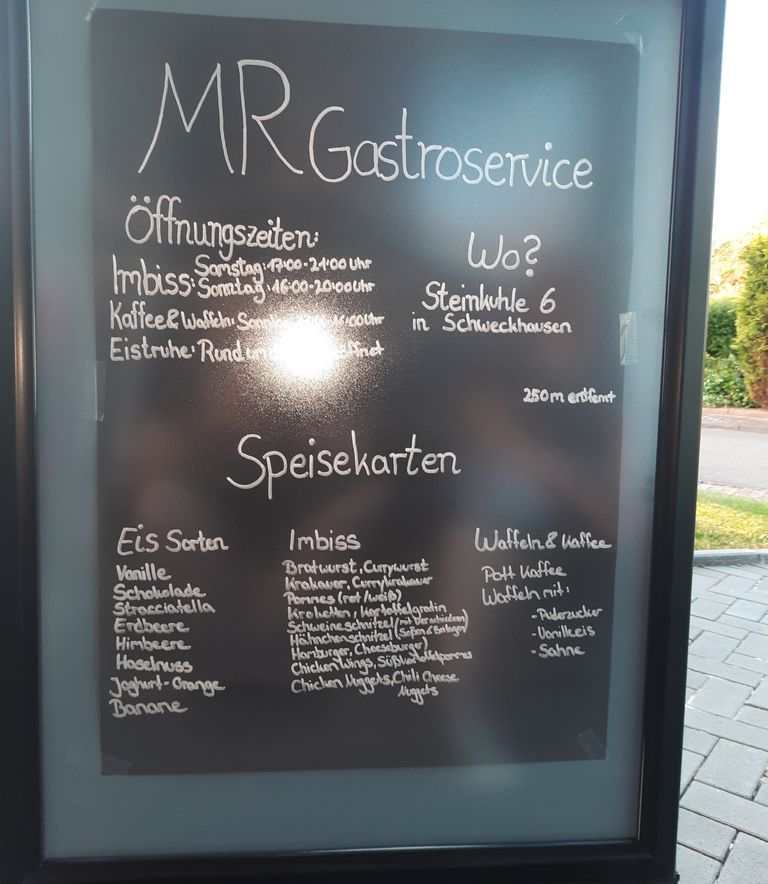 MR Gastroservice
Öffnungszeiten:
Imbiss: Samstag: 17:00-21:00 Uhr
Sonntag: 16:00-20:00 Uhr
Kaffee & Waffeln: Uhr
Eistruhe: Rund
Wo?
Steinkuhle 6
in Schweckhausen
250m entfernt
Speisekarten
Eis Sorten
Vanille
Schokolade
Stracciatella
Erdbeere
Himbeere
Haselnuss
Joghurt-Orange
Banane
Imbiss
Bratwurst, Currywurst
Krakauer, Currykrakauer
Pommes (rot/weiß)
Kroketten, Kartoffelgratin
Schweineschnitzel (mit verschiedenen)
Hähnchenschnitzel (Soßen & Beilagen)
Hamburger, Cheeseburger)
Chicken Wings, Süßkartoffelpommes
Chicken Nuggets, Chili Cheese
Nuggets
Waffeln & Kaffee
Pott Kaffee
Waffeln mit:
- Puderzucker
- Vanilleis
- Sahne